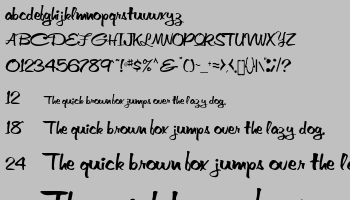 abcdefghijklmnopqrstuvwxyz
ABCDEFGHIJKLMNOPQRSTUVWXYZ
0123456789 "!#$%^&*'()-_+=><,[]{}|\:;/?
12 The quick brown fox jumps over the lazy dog.
18 The quick brown fox jumps over the lazy dog.
24 The quick brown fox jumps over the l